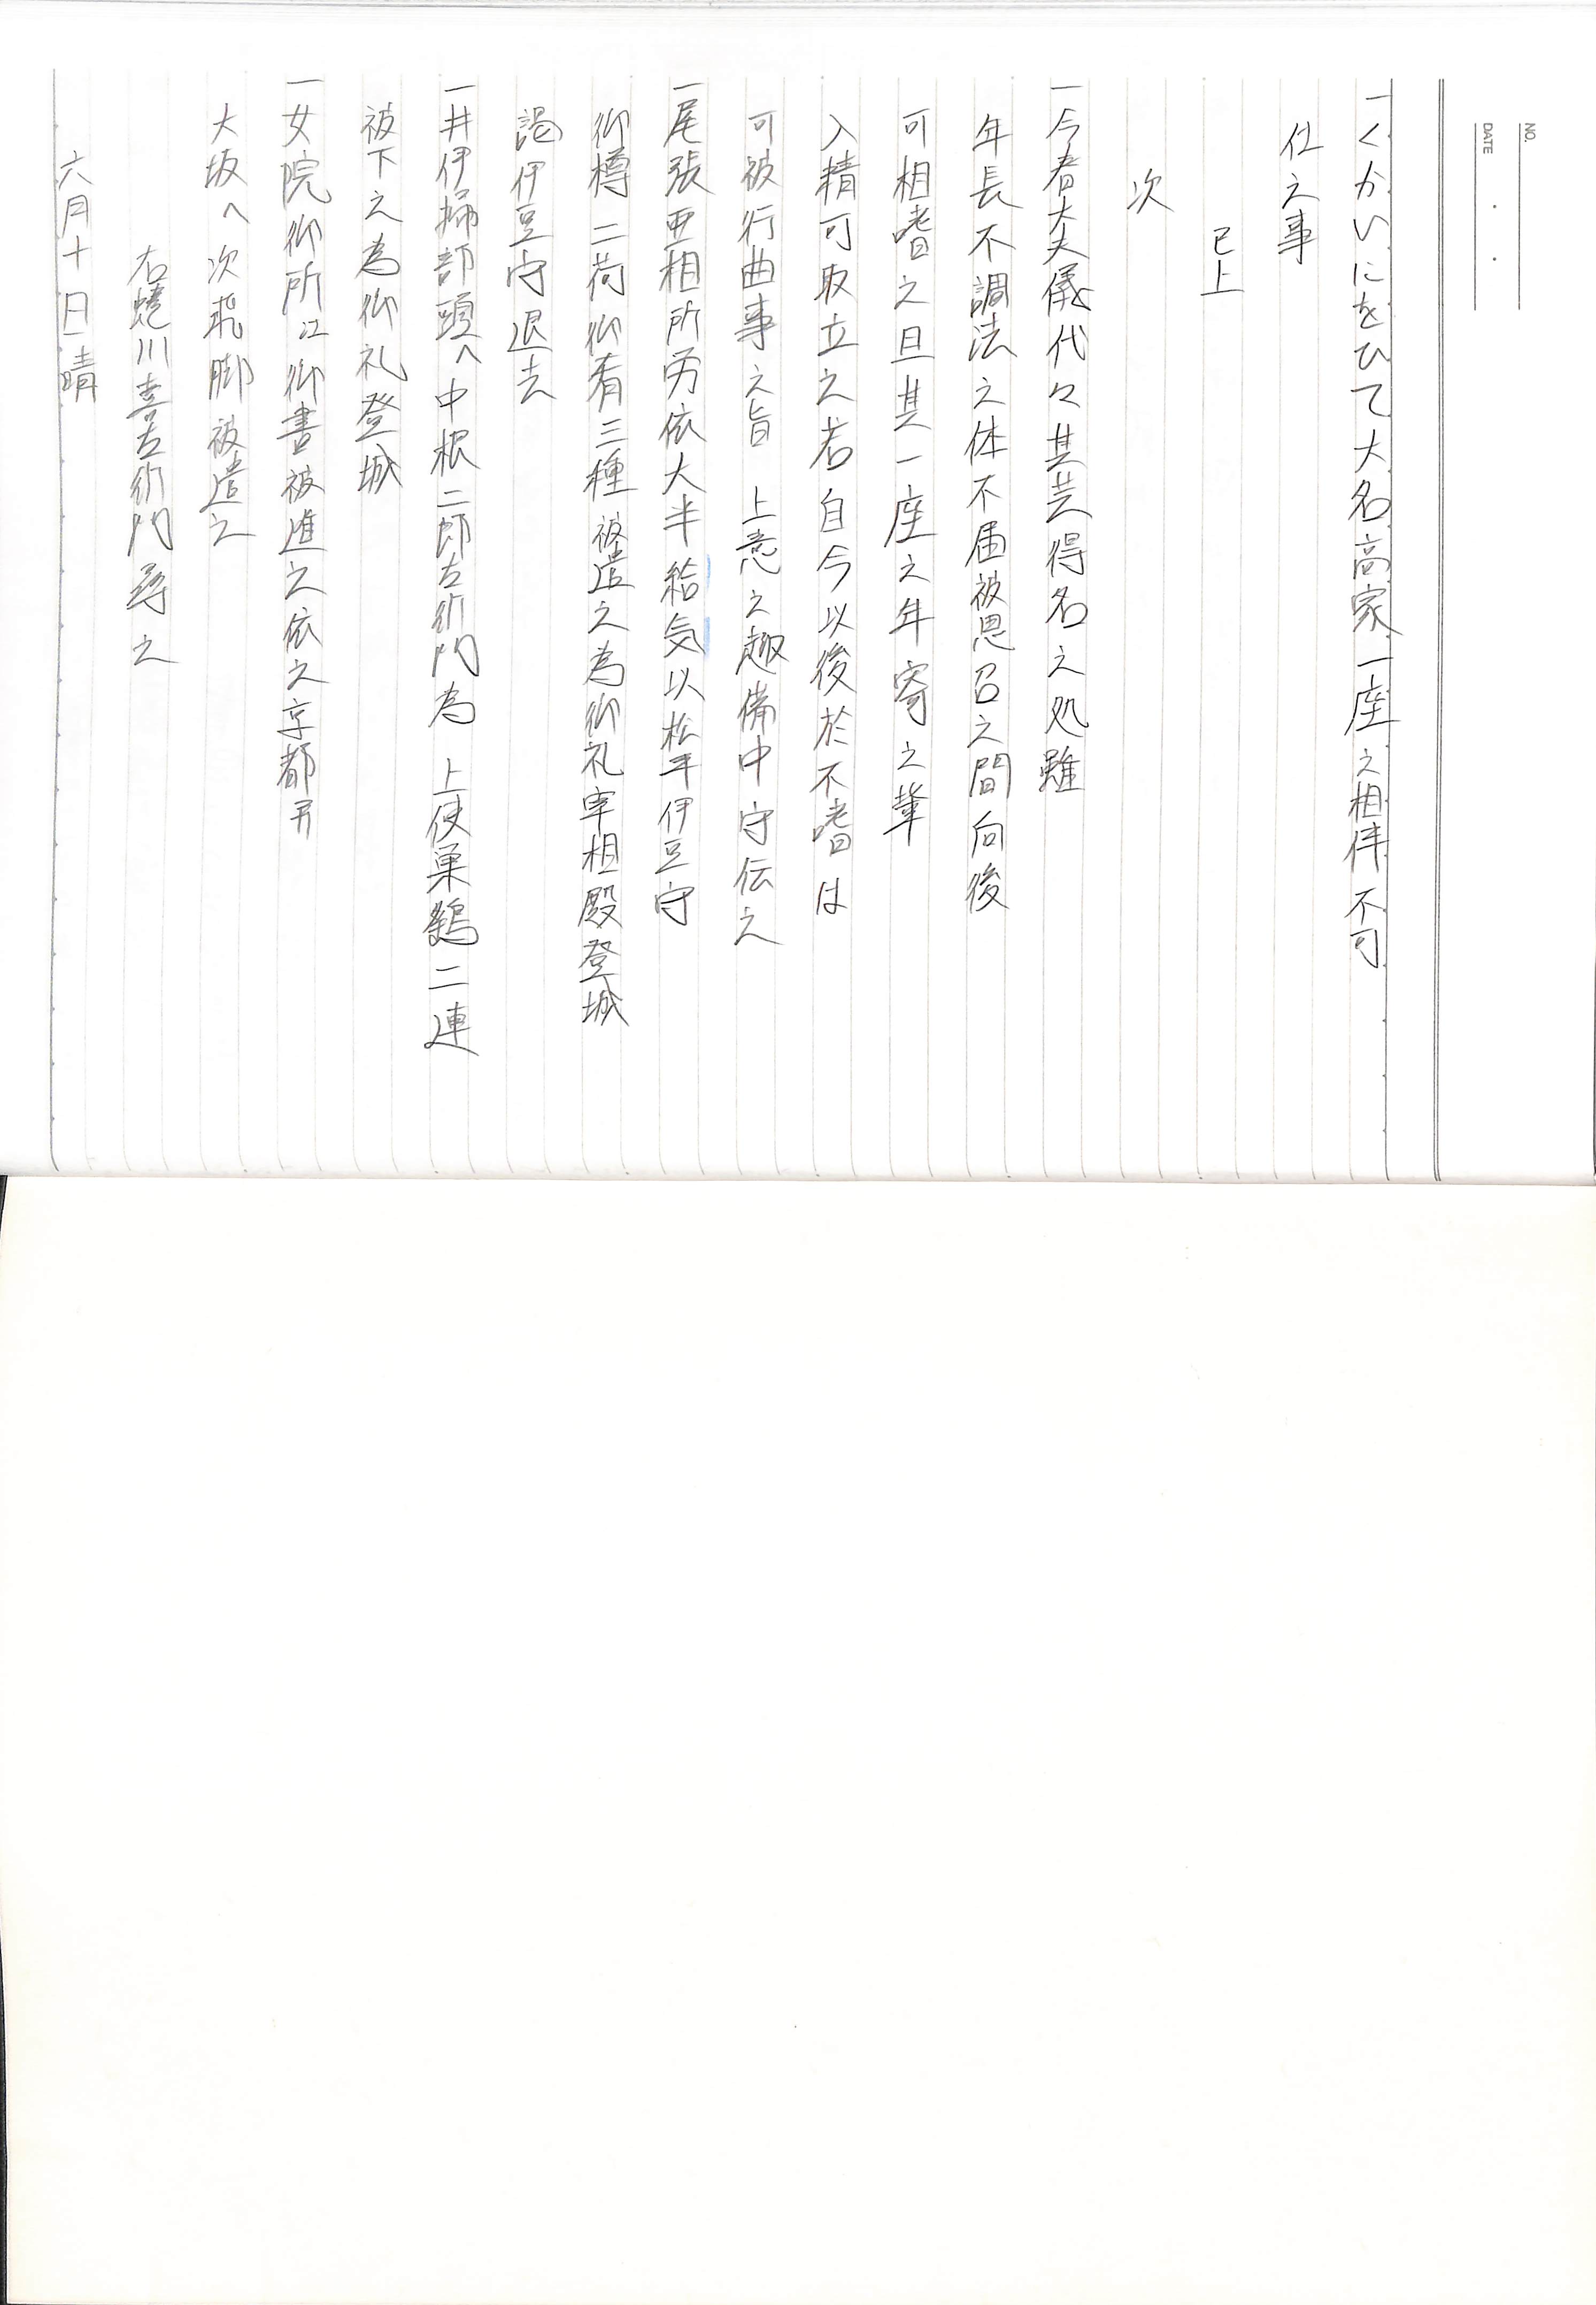 NO.
DATE
一くかいにをひて大名高家一座之相伴不可
仕之事
已上
次
一今春大夫儀代々其芸得名之処雖
年長不調法之体不届被思召之間向後
可相嗜之旦其一座之年寄之輩
入精可取立之若自今以後於不嗜は
可被行曲事之旨 上意之趣備中守伝之
一尾張亜相所労依大半給気以松平伊豆守
御樽二荷御肴三種被遣之為御礼宰相殿登城
謁伊豆守退去
一井伊掃部頭へ中根二郎左衛門為 上使巣鷂二連
被下之為御礼登城
一女院御所江御書被進之依之京都并
大坂へ次飛脚被遣之
右蜷川喜左衛門尋之
六月十日晴